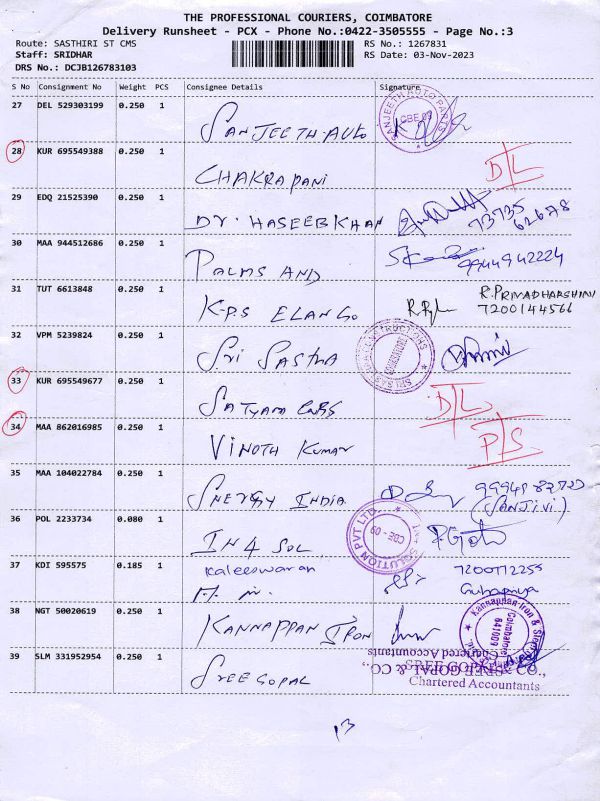 THE PROFESSIONAL COURIERS, COIMBATORE
Delivery Runsheet - PCX - Phone No.:0422-3505555 - Page No.:3
Route: SASTHIRI ST CMS RS No.: 1267831
Staff: SRIDHAR RS Date: 03-Nov-2023
DRS No.: DCJB126783103
S No Consignment No Weight PCS Consignee Details Signature
27 DEL 529303199 0.250 1 SANJEETH AUTO
SANJEETH AUTO PARTS CBE.09
28 KUR 695549388 0.250 1 CHAKRAPANI D/L
29 EDQ 21525390 0.250 1 DR. HASEEB KHAN 73735
62678
30 MAA 944512686 0.250 1 PALMS AND 9944942224
31 TUT 6613848 0.250 1 K.P.S ELANGO R.PRIYADHARSHINI
7200144566
32 VPM 5239824 0.250 1 SRI SASTHA
33 KUR 695549677 0.250 1 SATYAM D/L
34 MAA 862016985 0.250 1 VINOTH KUMAR P/S
35 MAA 104022784 0.250 1 SNERGY INDIA
(SANJIVI)
36 POL 2233734 0.080 1 IN 4 SOL
SOLUTION PVT LTD. CBE - 09
37 KDI 595575 0.185 1 Kaleeswaran 7200712255
38 NGT 50020619 0.250 1 KANNAPPAN IRON
Kannappan Iron & Steel Coimbatore 641009
39 SLM 331952954 0.250 1 SREE GOPAL
SREE GOPAL & CO.,
Chartered Accountants
13